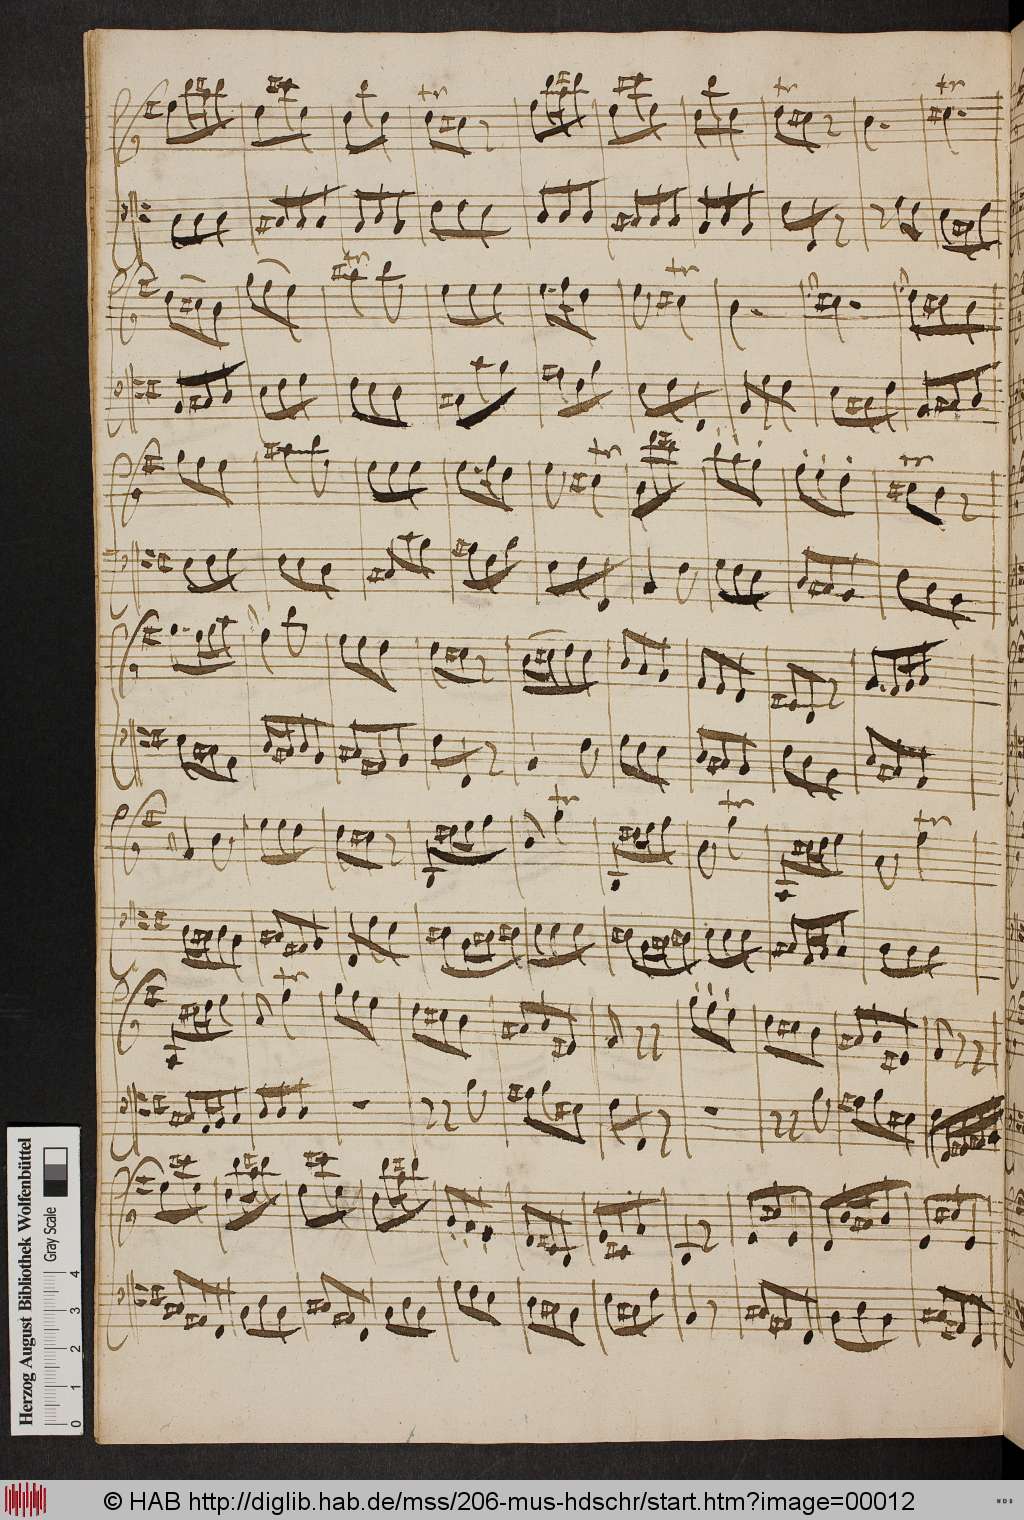 tr tr tr
tr tr
tr tr
tr tr tr
tr
Herzog August Bibliothek Wolfenbüttel
Gray Scale
0 1 2 3 4
© HAB http://diglib.hab.de/mss/206-mus-hdschr/start.htm?image=00012